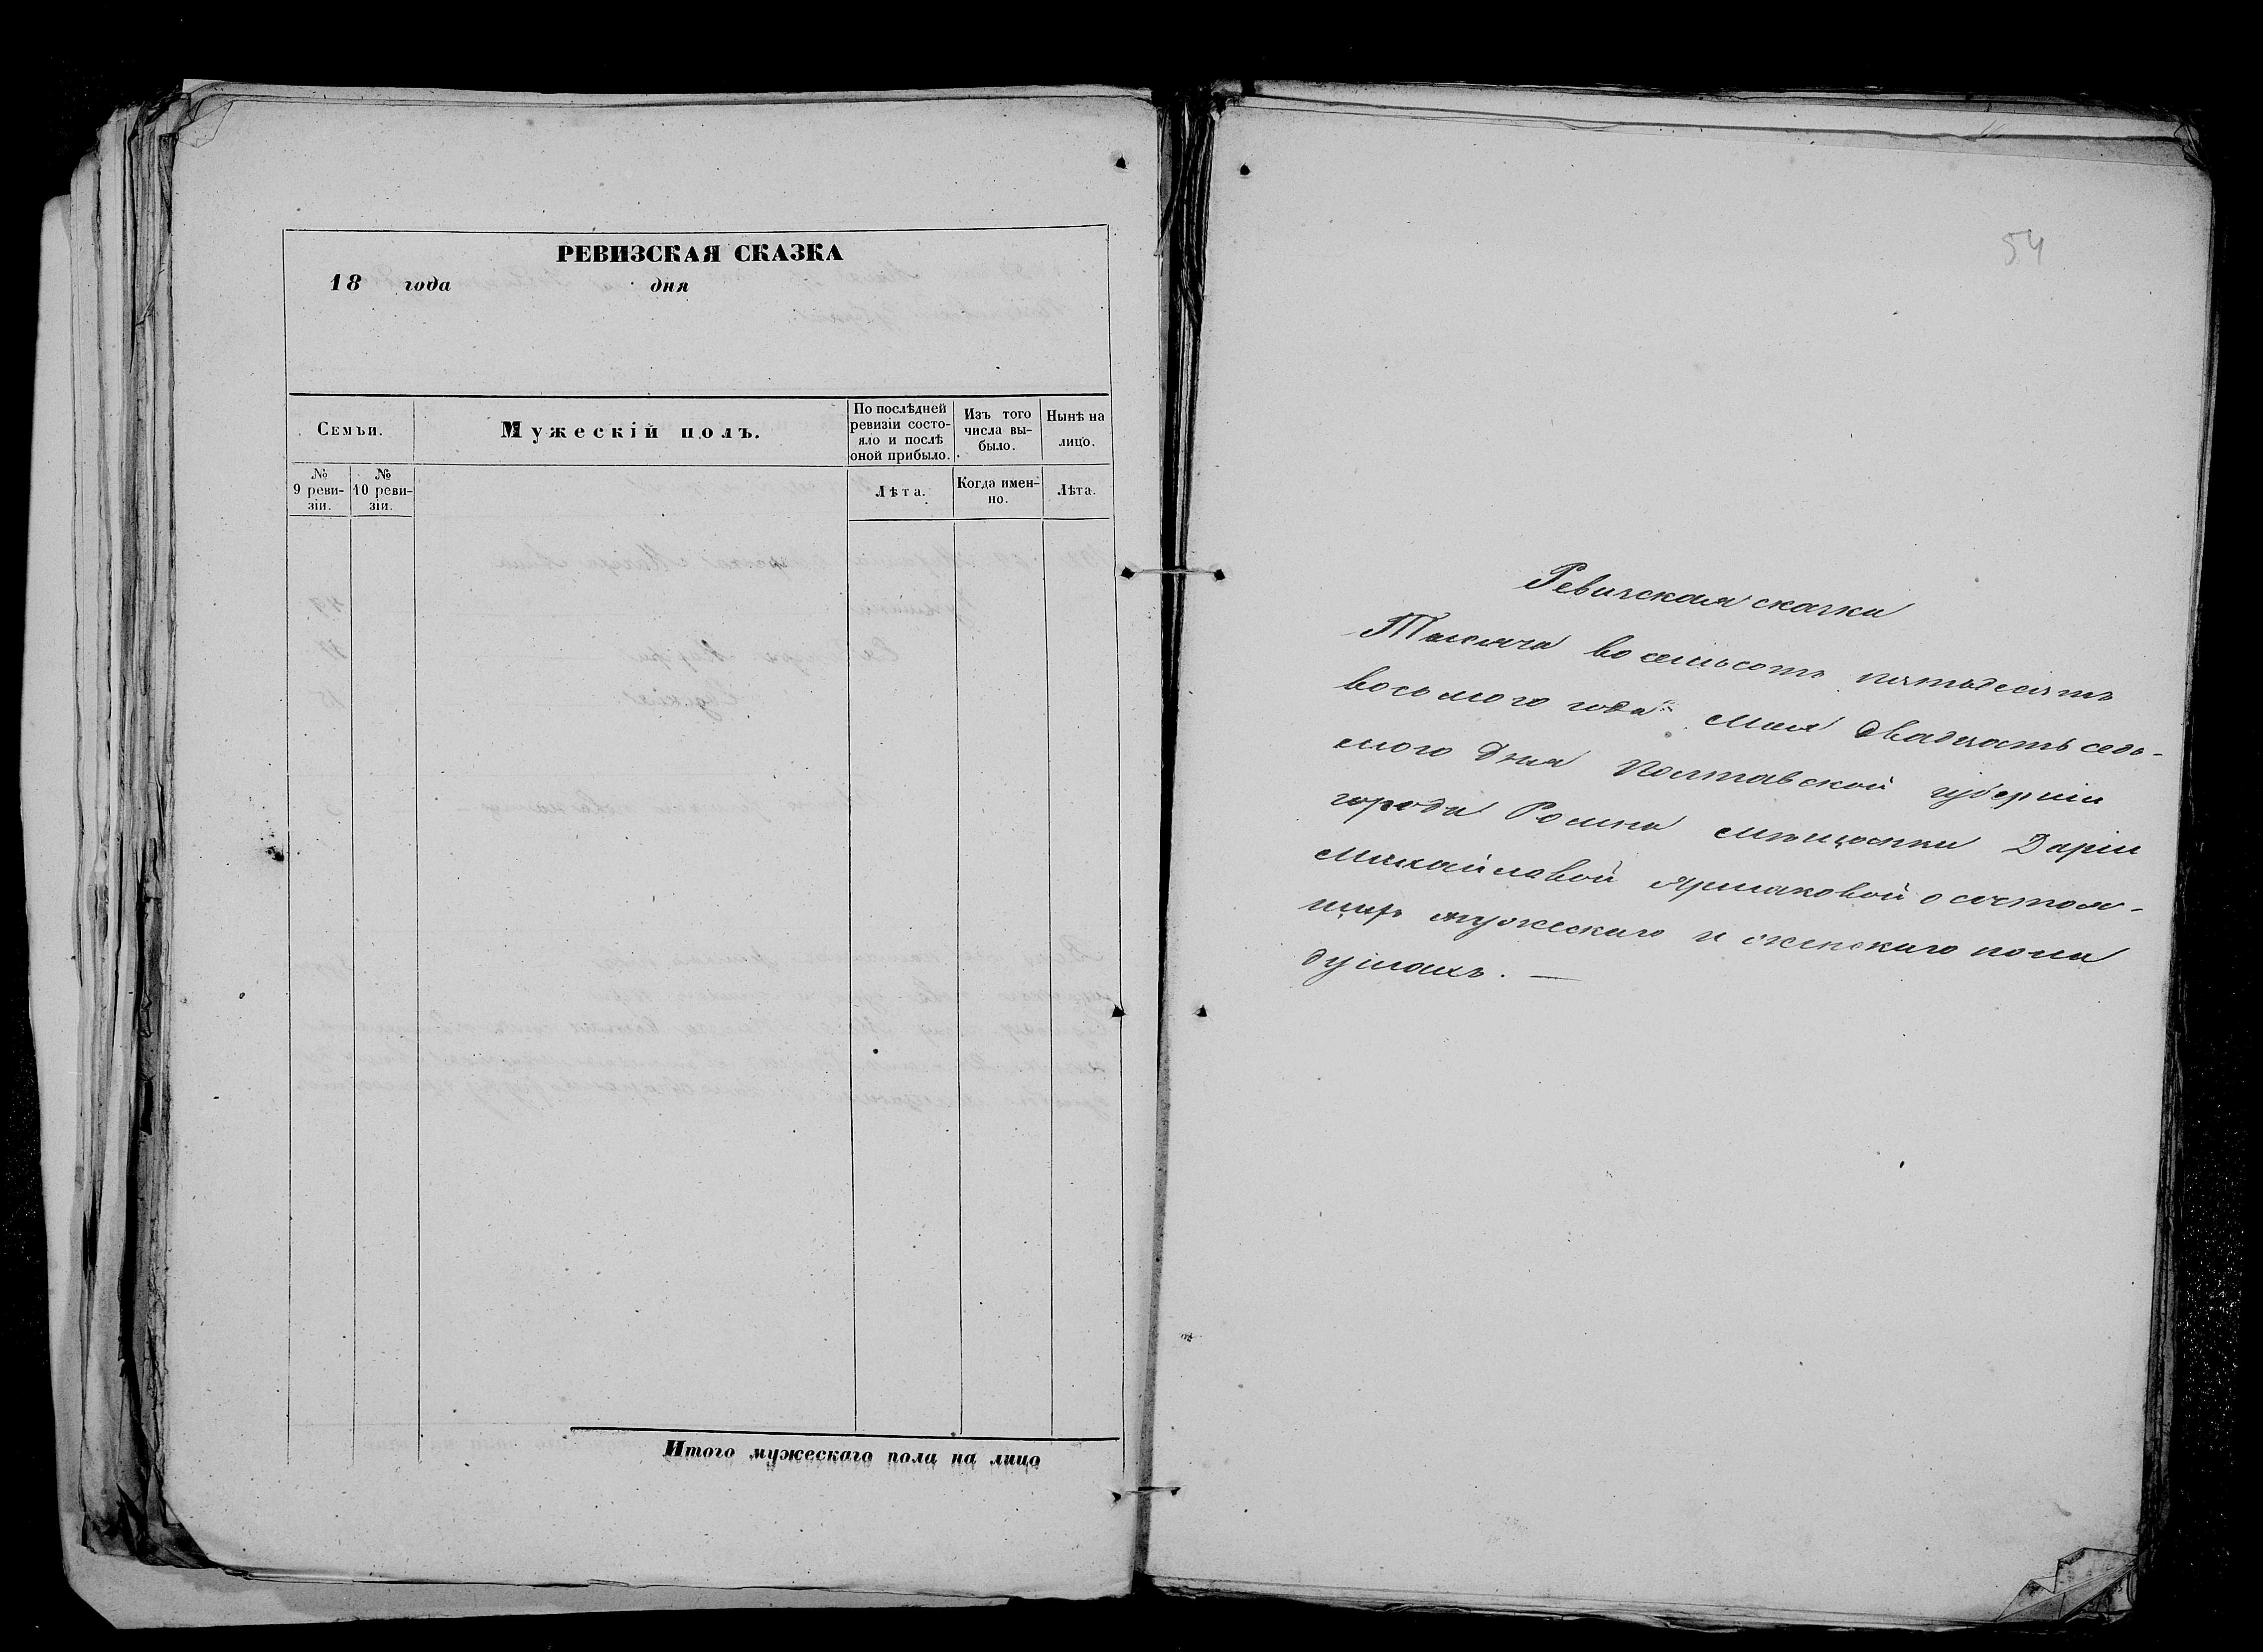 РЕВИЗСКАЯ СКАЗКА
18 года дня
Семьи.
Мужескій полъ.
По послѣдней ревизіи состо-яло и послѣ оной прибыло.
Изъ того числа вы-было.
Нынѣ на лицо.
№ 9 реви-зіи.
№ 10 реви-зіи.
Лѣта.
Когда имен-но.
Лѣта.
Итого мужескаго пола на лицо
54
Ревизская сказка
Тысяча восемьсотъ пятьдесятъ
восьмого года Мая двадцать седь-
мого дня Полтавской губерніи
города Ромна мѣщанки Даріи
Михайловой Ярмаковой о состоя-
щихъ мужескаго и женскаго пола
душахъ. —